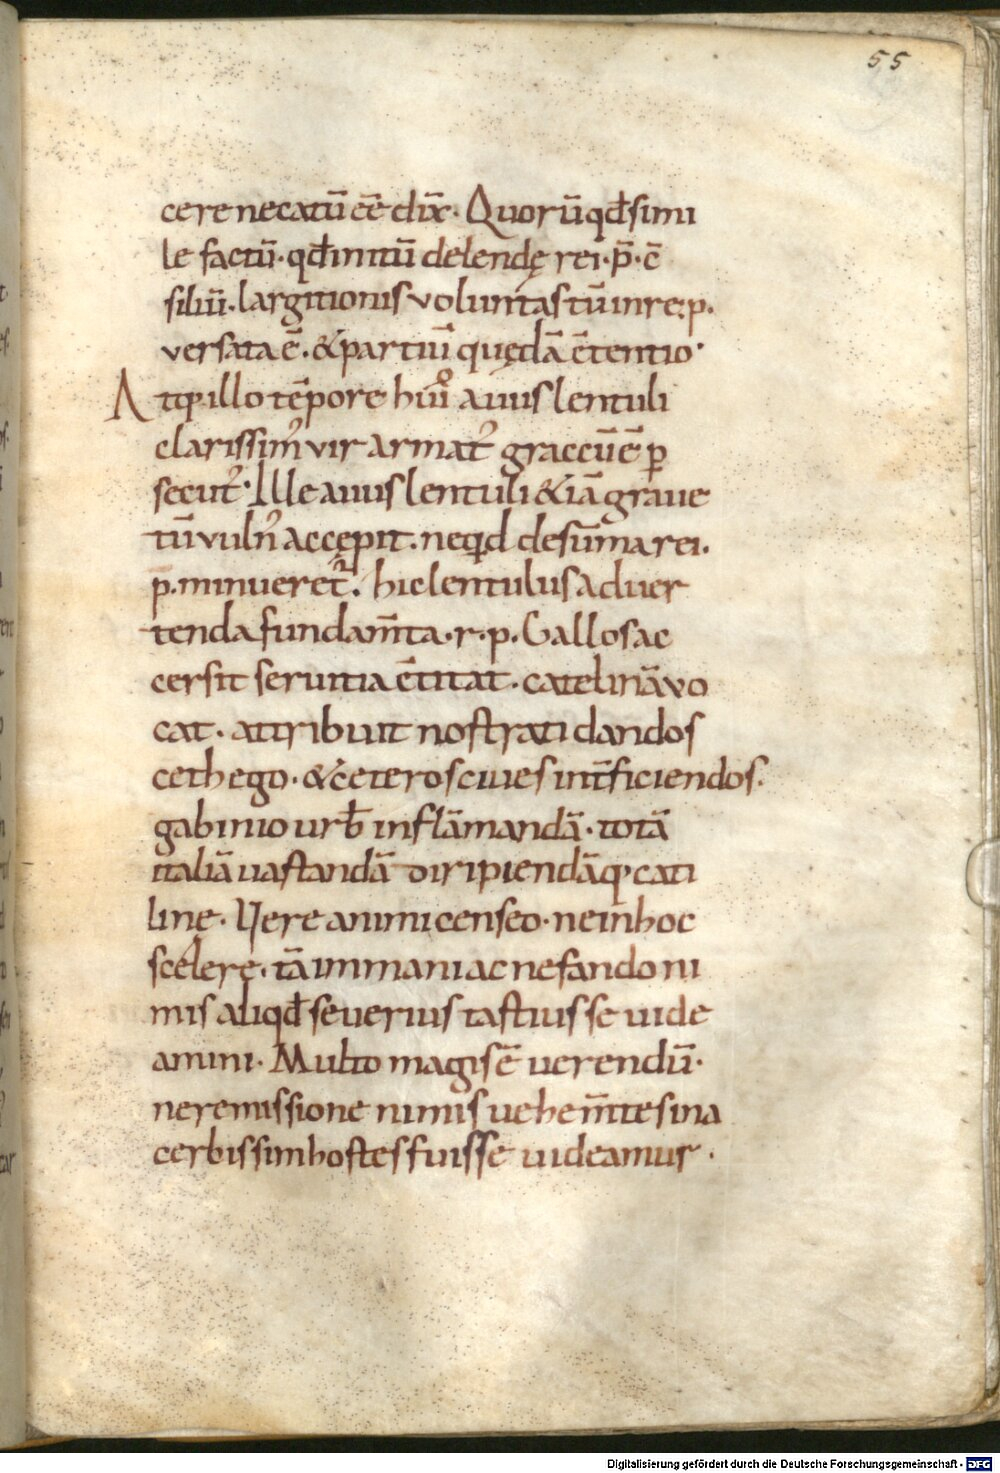 55
cere necatū eē dix̄. Quorū qđ simi
le factū. qđ initū delendę rei. p̄. c̄
siliū. largitionis voluntas tū in re. p.
versata ē. & partiū quędā c̄tentio.
Atq. illo tēpore huiꝰ avus lentuli
clarissimꝰ vir armatꝰ graccū ē p
secutꝰ. Ille avus lentuli & iā grave
tū vulnꝰ accępit. neqd de sūma rei.
p. minueret᷑. hic lentulus aduer
tenda fundam̄ta. r. p. Gallos ac
cersit seruitia c̄titat. catelinā vo
cat. attribuit nos trati dandos
cethego. & ceteros ciues int̄ficiendos.
gabinio urƀ inflāmandā. totā
italiā uastandā diripiendāq. cati
linę. Vere animi censeo. ne in hoc
scelere. tā immani ac nefando ni
mis aliqđ severius tastiusse uide
amini. Multo magis ē uerendū.
ne remissione nimis uehem̄tes in a
cerbissim hostes fuisse uideamur.
Digitalisierung gefördert durch die Deutsche Forschungsgemeinschaft - DFG